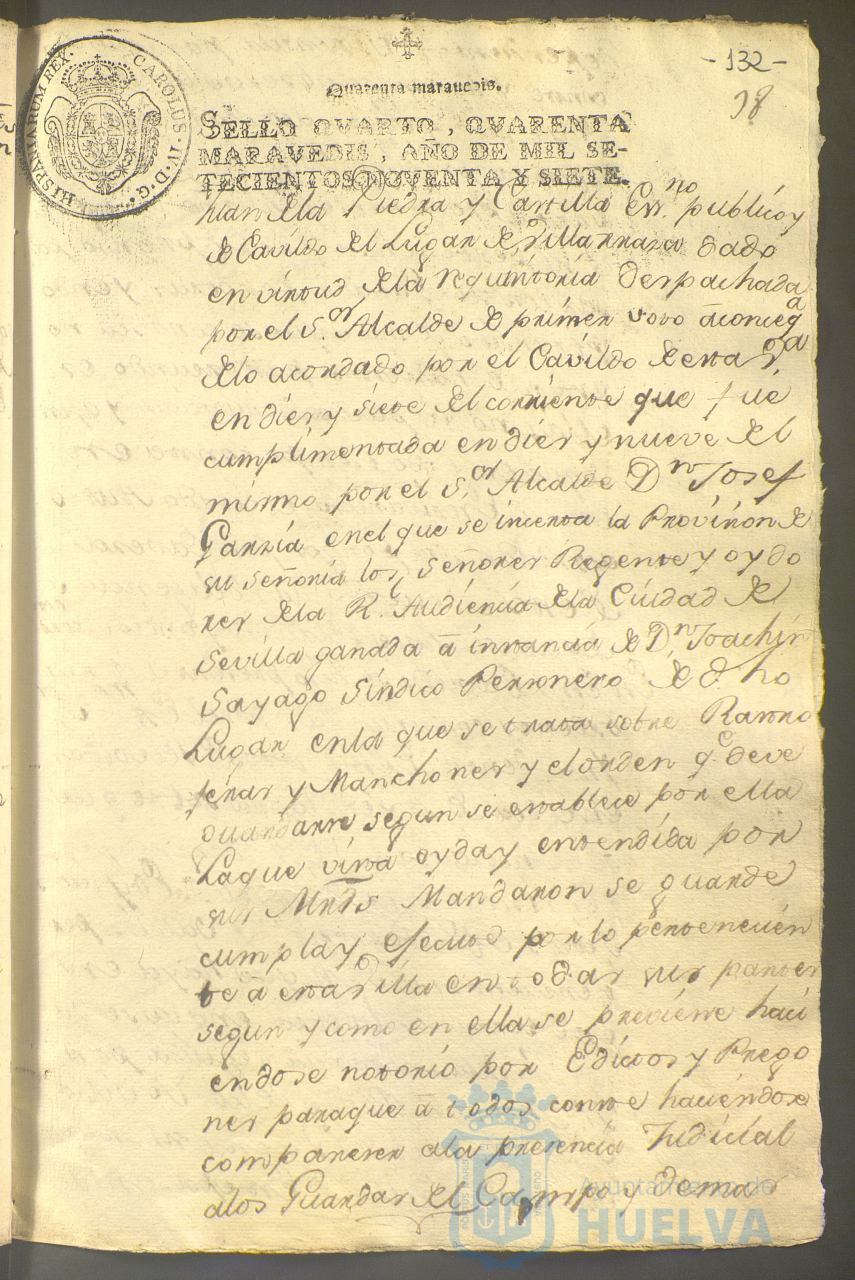 - 132 -
98
Quarenta marauedis.
SELLO QVARTO, QVARENTA
MARAVEDIS, AÑO DE MIL SE-
TECIENTOS NOVENTA Y SIETE.
HISPANIARUM REX. CAROLUS IV D. G.
Juan de la Piedra y Castilla Esno. publico y
de Cavildo del Lugar de Villarrasa dado
en virtud de la requisitoria despachada
por el Sor. Alcalde de primer voto a conseqa
de lo acordado por el Cavildo de esta Va
en diez y siete del corriente que fué
cumplimentada en diez y nueve del
mismo por el Sor. Alcalde Dn. Josef
Garzia en el que se incerta la Provision de
su señoria los señores Regente y oydo
res de la R. Audiencia de la Ciudad de
Sevilla ganada a instancia de Dn. Joachin
Sayago Sindico Personero de dho
Lugar en la que se trata sobre Rastro
feras y Manchones y el orden qe deve
guardarse segun se establece por ella
La que vista oyda y entendida por
sus Mrds Mandaron se guarde
cumpla y efectue por lo pertenecien
te a esta Villa en todas sus partes
segun y como en ella se previene haci
endose notorio por Edictos y Prego
nes para que a todos conste haciendose
comparecer a la presencia Judicial
a los Guardas del Campo y demas
Ayuntamiento de
HUELVA